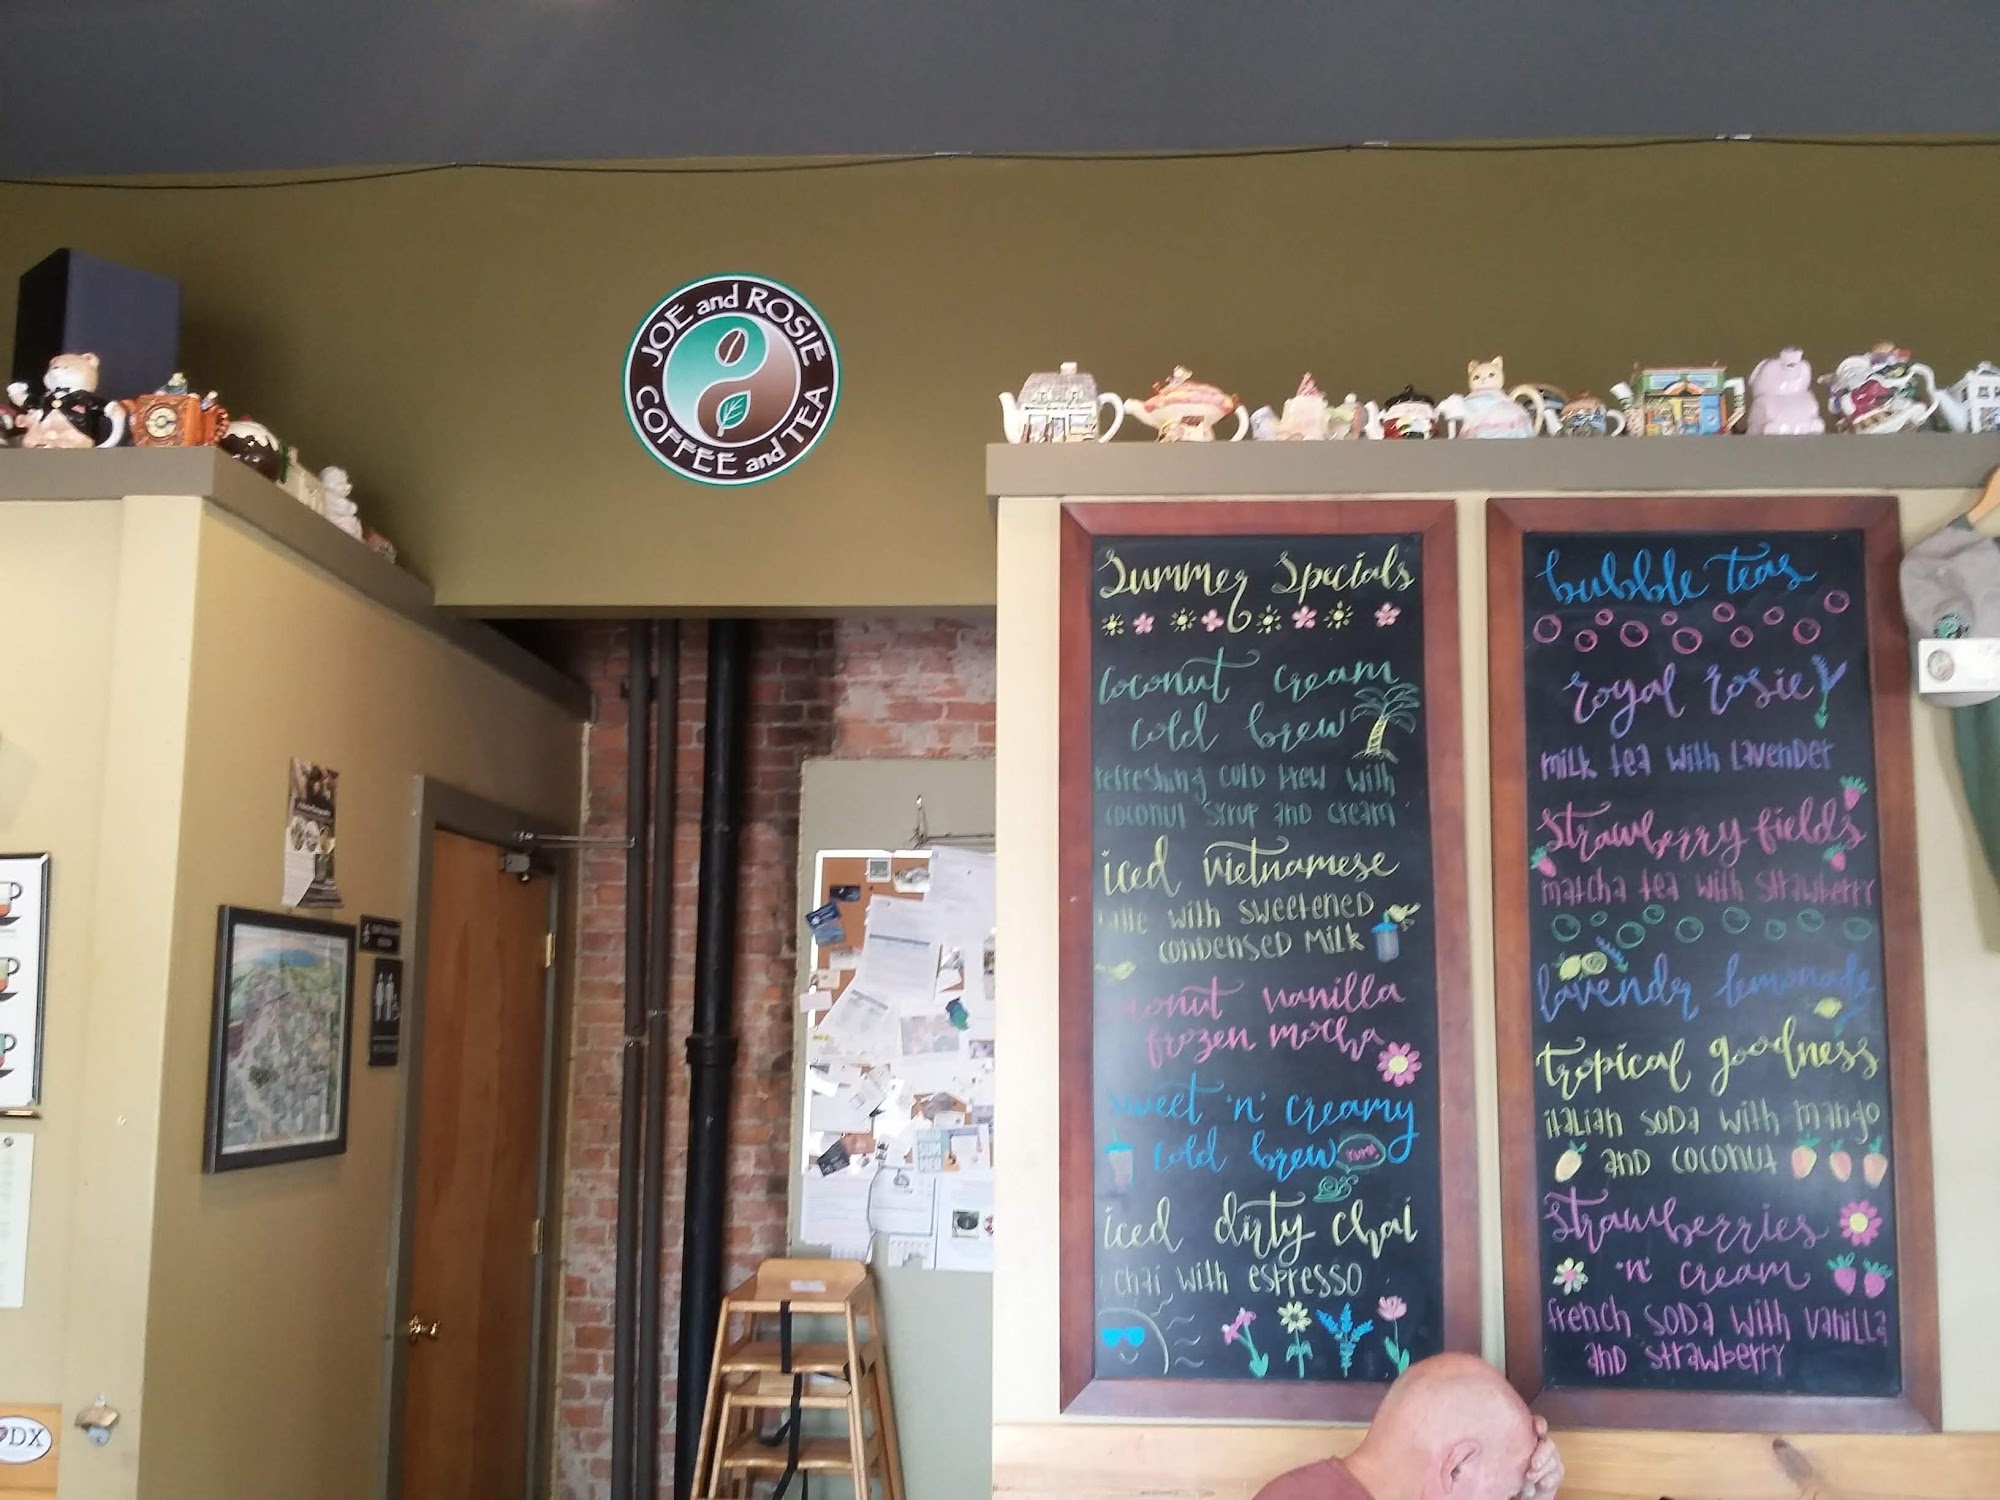 JOE and ROSIE
COFFEE and TEA
Summer Specials
coconut cream
cold brew
refreshing cold brew with
coconut syrup and cream
iced vietnamese
with sweetened
condensed milk
coconut vanilla
frozen mocha
sweet 'n' creamy
cold brew
YUM!
iced dirty chai
chai with espresso
bubble teas
royal rosie
milk tea with lavender
strawberry fields
matcha tea with strawberry
lavender lemonade
tropical goodness
italian soda with mango
and coconut
strawberries
'n' cream
french soda with vanilla
and strawberry
DX